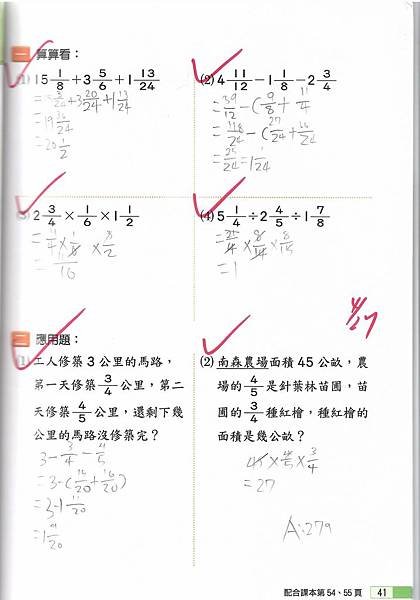 一 算算看：
(1) 15 1/8 + 3 5/6 + 1 13/24
= 15 3/24 + 3 20/24 + 1 13/24
= 19 36/24
= 20 1/2
(2) 4 11/12 − 1 1/8 − 2 3/4
(3) 2 3/4 × 1/6 × 1 1/2
= 11/4 × 1/6 × 3/2
= 11/16
(4) 5 1/4 ÷ 2 4/5 ÷ 1 7/8
= 1
二 應用題：
(1) 工人修築 3 公里的馬路，
第一天修築 3/4 公里，第二
天修築 4/5 公里，還剩下幾
公里的馬路沒修築完？
3 - 3/4 - 4/5
= 3 - (15/20 + 16/20)
= 3 - 1 11/20
= 1 9/20
(2) 南森農場面積 45 公畝，農
場的 4/5 是針葉林苗圃，苗
圃的 3/4 種紅檜，種紅檜的
面積是幾公畝？
45 × 4/5 × 3/4
= 27
配合課本第 54、55 頁 41